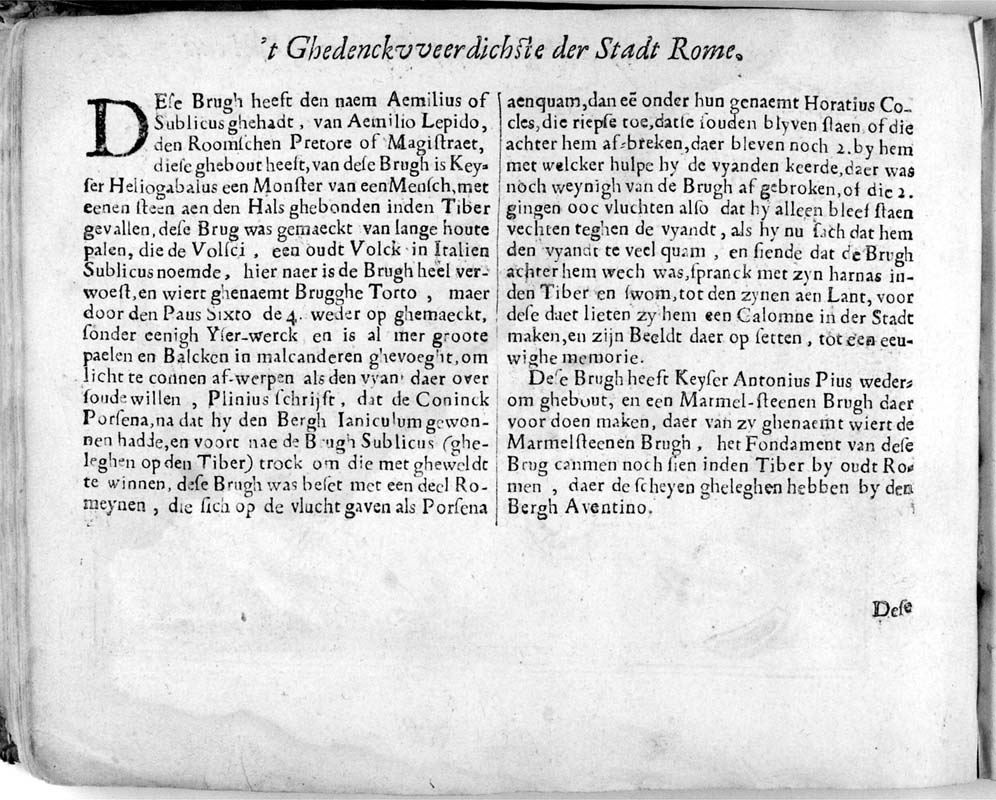 't Ghedenckvveerdichste der Stadt Rome.
DEſe Brugh heeft den naem Aemilius of
Sublicus ghehadt, van Aemilio Lepido,
den Roomſchen Pretore of Magiſtraet,
dieſe ghebout heeft, van deſe Brugh is Key-
ſer Heliogabalus een Monſter van een Menſch, met
eenen ſteen aen den Hals ghebonden inden Tiber
gevallen, deſe Brug was gemaeckt van lange houte
palen, die de Volſci, een oudt Volck in Italien
Sublicus noemde, hier naer is de Brugh heel ver-
woeſt, en wiert ghenaemt Brugghe Torto, maer
door den Paus Sixto de 4. weder op ghemaeckt,
ſonder eenigh Yſer-werck en is al mer groote
paelen en Balcken in malcanderen ghevoeght, om
licht te connen af-werpen als den vyan daer over
ſoude willen, Plinius ſchrijft, dat de Coninck
Porſena, na dat hy den Bergh Ianiculum gewon-
nen hadde, en voort nae de Brugh Sublicus (ghe-
leghen op den Tiber) trock om die met gheweldt
te winnen, deſe Brugh was beſet met een deel Ro-
meynen, die ſich op de vlucht gaven als Porſena
aenquam, dan eē onder hun genaemt Horatius Co-
cles, die riepſe toe, datſe ſouden blyven ſtaen of die
achter hem af-breken, daer bleven noch 2. by hem
met welcker hulpe hy de vyanden keerde, daer was
noch weynigh van de Brugh af gebroken, of die 2.
gingen ooc vluchten alſo dat hy alleen bleef ſtaen
vechten teghen de vyandt, als hy nu ſach dat hem
den vyandt te veel quam, en ſiende dat de Brugh
achter hem wech was, ſpranck met zyn harnas in-
den Tiber en ſwom, tot den zynen aen Lant, voor
deſe daet lieten zy hem een Calomne in der Stadt
maken, en zijn Beeldt daer op ſetten, tot een eeu-
wighe memorie.
Deſe Brugh heeft Keyſer Antonius Pius weder-
om ghebout, en een Marmel-ſteenen Brugh daer
voor doen maken, daer van zy ghenaemt wiert de
Marmelſteenen Brugh, het Fondament van deſe
Brug canmen noch ſien inden Tiber by oudt Ro-
men, daer de ſcheyen gheleghen hebben by den
Bergh Aventino.
Deſe